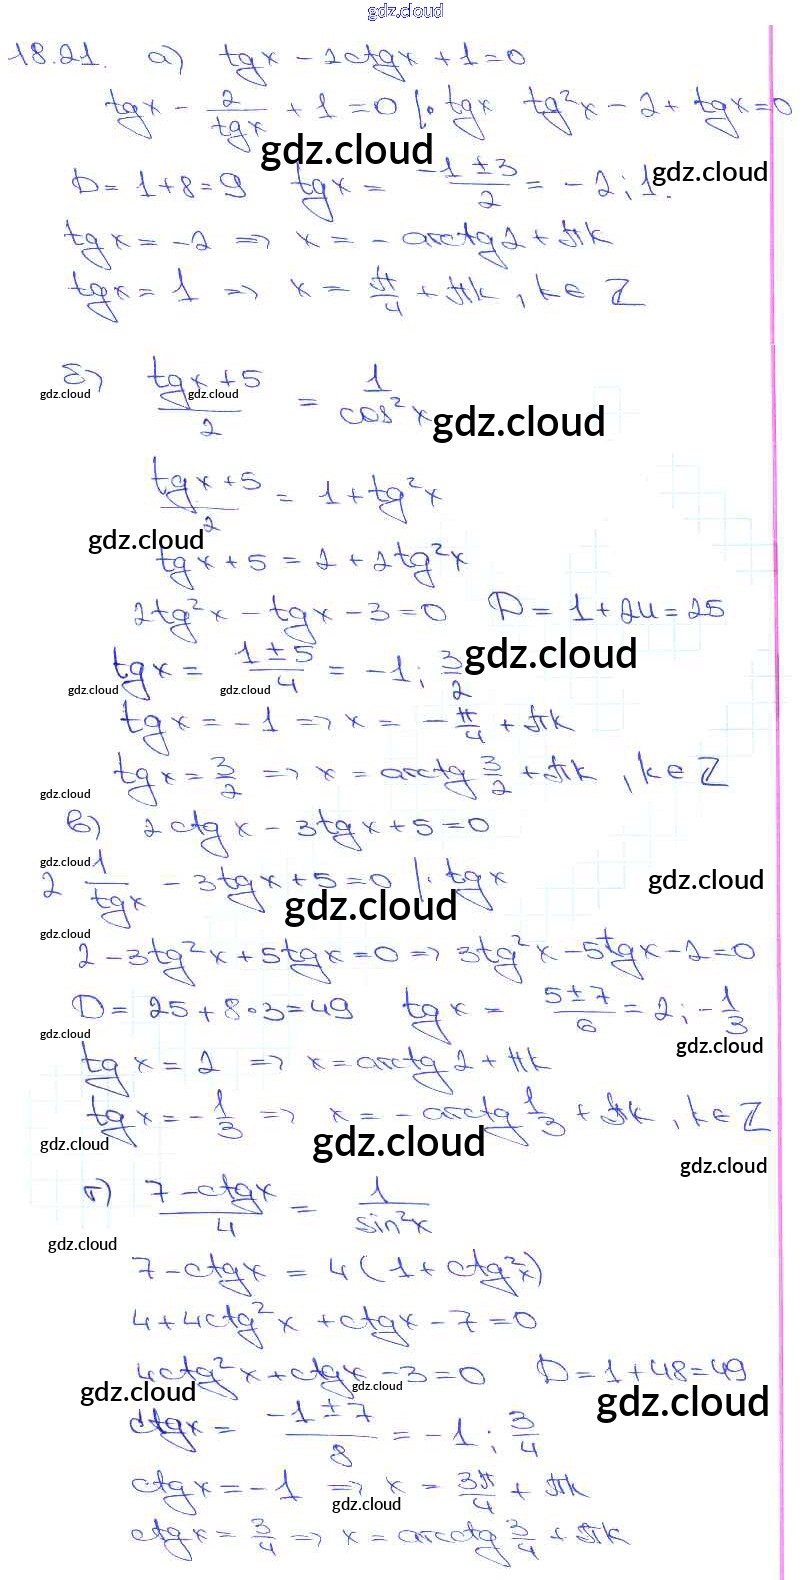 gdz.cloud
18.21. а) tgx - 2ctgx + 1 = 0
tgx - 2/tgx + 1 = 0 |· tgx   tg²x - 2 + tgx = 0
gdz.cloud
gdz.cloud
D = 1+8 = 9   tgx = (-1 ± 3)/2 = -2; 1.
tgx = -2 => x = - arctg2 + πk
tgx = 1 => x = π/4 + πk, k ∈ Z
б) (tgx + 5)/2 = 1/cos²x
gdz.cloud gdz.cloud
gdz.cloud
(tgx + 5)/2 = 1 + tg²x
gdz.cloud
tgx + 5 = 2 + 2tg²x
2tg²x - tgx - 3 = 0   D = 1 + 24 = 25
tgx = (1 ± 5)/4 = -1; 3/2
gdz.cloud
gdz.cloud gdz.cloud
tgx = -1 => x = - π/4 + πk
tgx = 3/2 => x = arctg 3/2 + πk, k ∈ Z
gdz.cloud
в) 2ctgx - 3tgx + 5 = 0
gdz.cloud
2 1/tgx - 3tgx + 5 = 0 |· tgx
gdz.cloud
gdz.cloud
gdz.cloud
2 - 3tg²x + 5tgx = 0 => 3tg²x - 5tgx - 2 = 0
D = 25 + 8·3 = 49   tgx = (5 ± 7)/6 = 2; -1/3
gdz.cloud
gdz.cloud
tgx = 2 => x = arctg2 + πk
tgx = -1/3 => x = - arctg 1/3 + πk, k ∈ Z
gdz.cloud
gdz.cloud
gdz.cloud
г) (7 - ctgx)/4 = 1/sin²x
gdz.cloud
7 - ctgx = 4(1 + ctg²x)
4 + 4ctg²x + ctgx - 7 = 0
4ctg²x + ctgx - 3 = 0   D = 1 + 48 = 49
gdz.cloud gdz.cloud gdz.cloud
ctgx = (-1 ± 7)/8 = -1; 3/4
ctgx = -1 => x = 3π/4 + πk
gdz.cloud
ctgx = 3/4 => x = arcctg 3/4 + πk